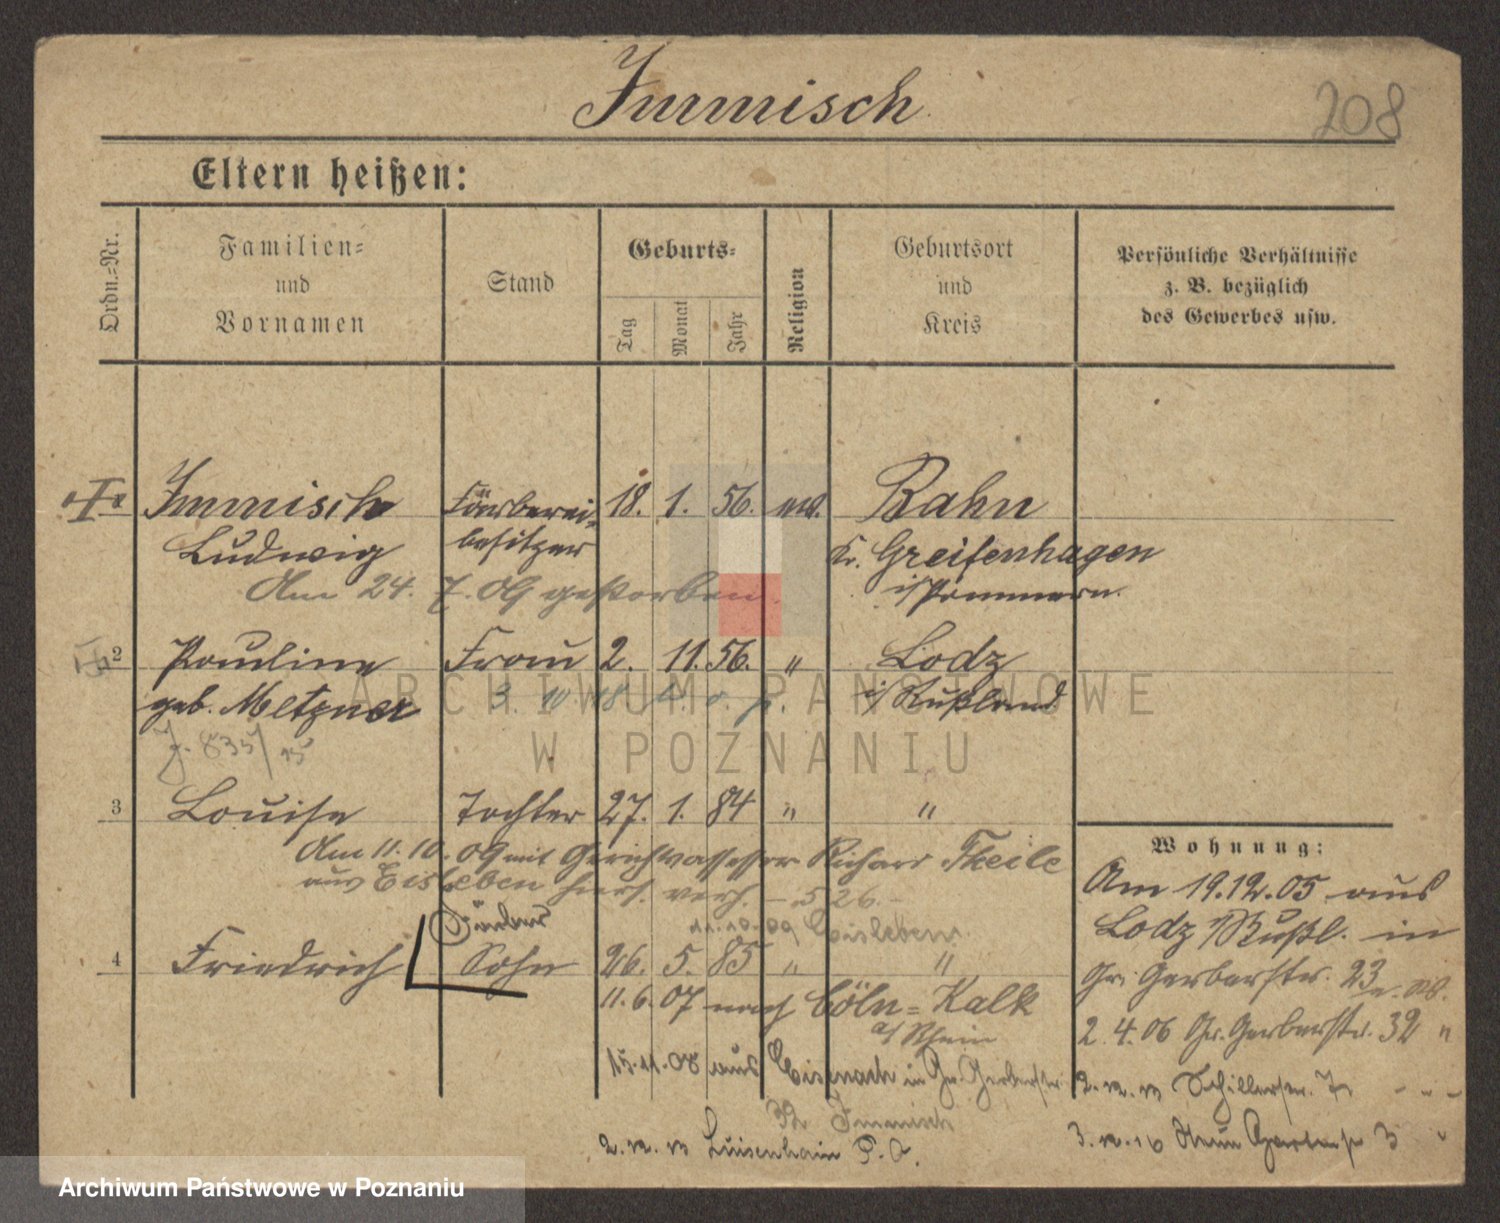 Immisch
208
Eltern heißen:
Ordn.=Nr.
Familien=
und
Vornamen
Stand
Geburts=
Tag
Monat
Jahr
Religion
Geburtsort
und
Kreis
Persönliche Verhältnisse
z. B. bezüglich
des Gewerbes usw.
Immisch Färberei= 18. 1. 56. ev. Bahn
Ludwig besitzer Kr. Greifenhagen
Am 24. 7. 09 gestorben. i/Pommern.
2 Pauline Frau 2. 11. 56. " Lodz
geb. Metzner i/Rußland
J. 835/15
3 Louise Tochter 27. 1. 84 " "
Am 11.10.09 mit Gerichtsassessor Richard Theile
aus Eisleben hier verh. – 526. –
11.10.09 Eisleben.
Färber
4 Friedrich Sohn 26. 5. 85 " "
11.6.07 nach Cöln=Kalk
a/Rhein
15.11.08 aus Eisenach in Gr. Gerberstr.
32 Immisch
Luisenhain P. O.
Wohnung:
Am 19.12.05 aus
Lodz i/Rußl. in
Gr. Gerberstr. 23
2.4.06 Gr. Gerberstr. 32 "
Schillerstr. 7
3. Gartenstr 3 "
ARCHIWUM PAŃSTWOWE
W POZNANIU
Archiwum Państwowe w Poznaniu